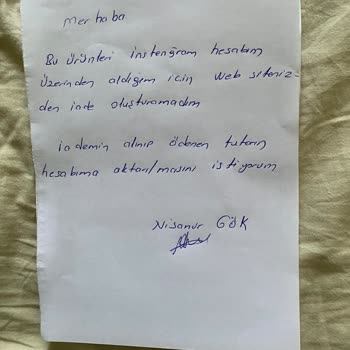 Merhaba
Bu ürünleri instengram hesabım
üzerinden aldığım için web siteniz-
den iade oluşturamadım
iademin alınıp ödenen tutarın
hesabıma aktarılmasını istiyorum
Nisanur GÖK